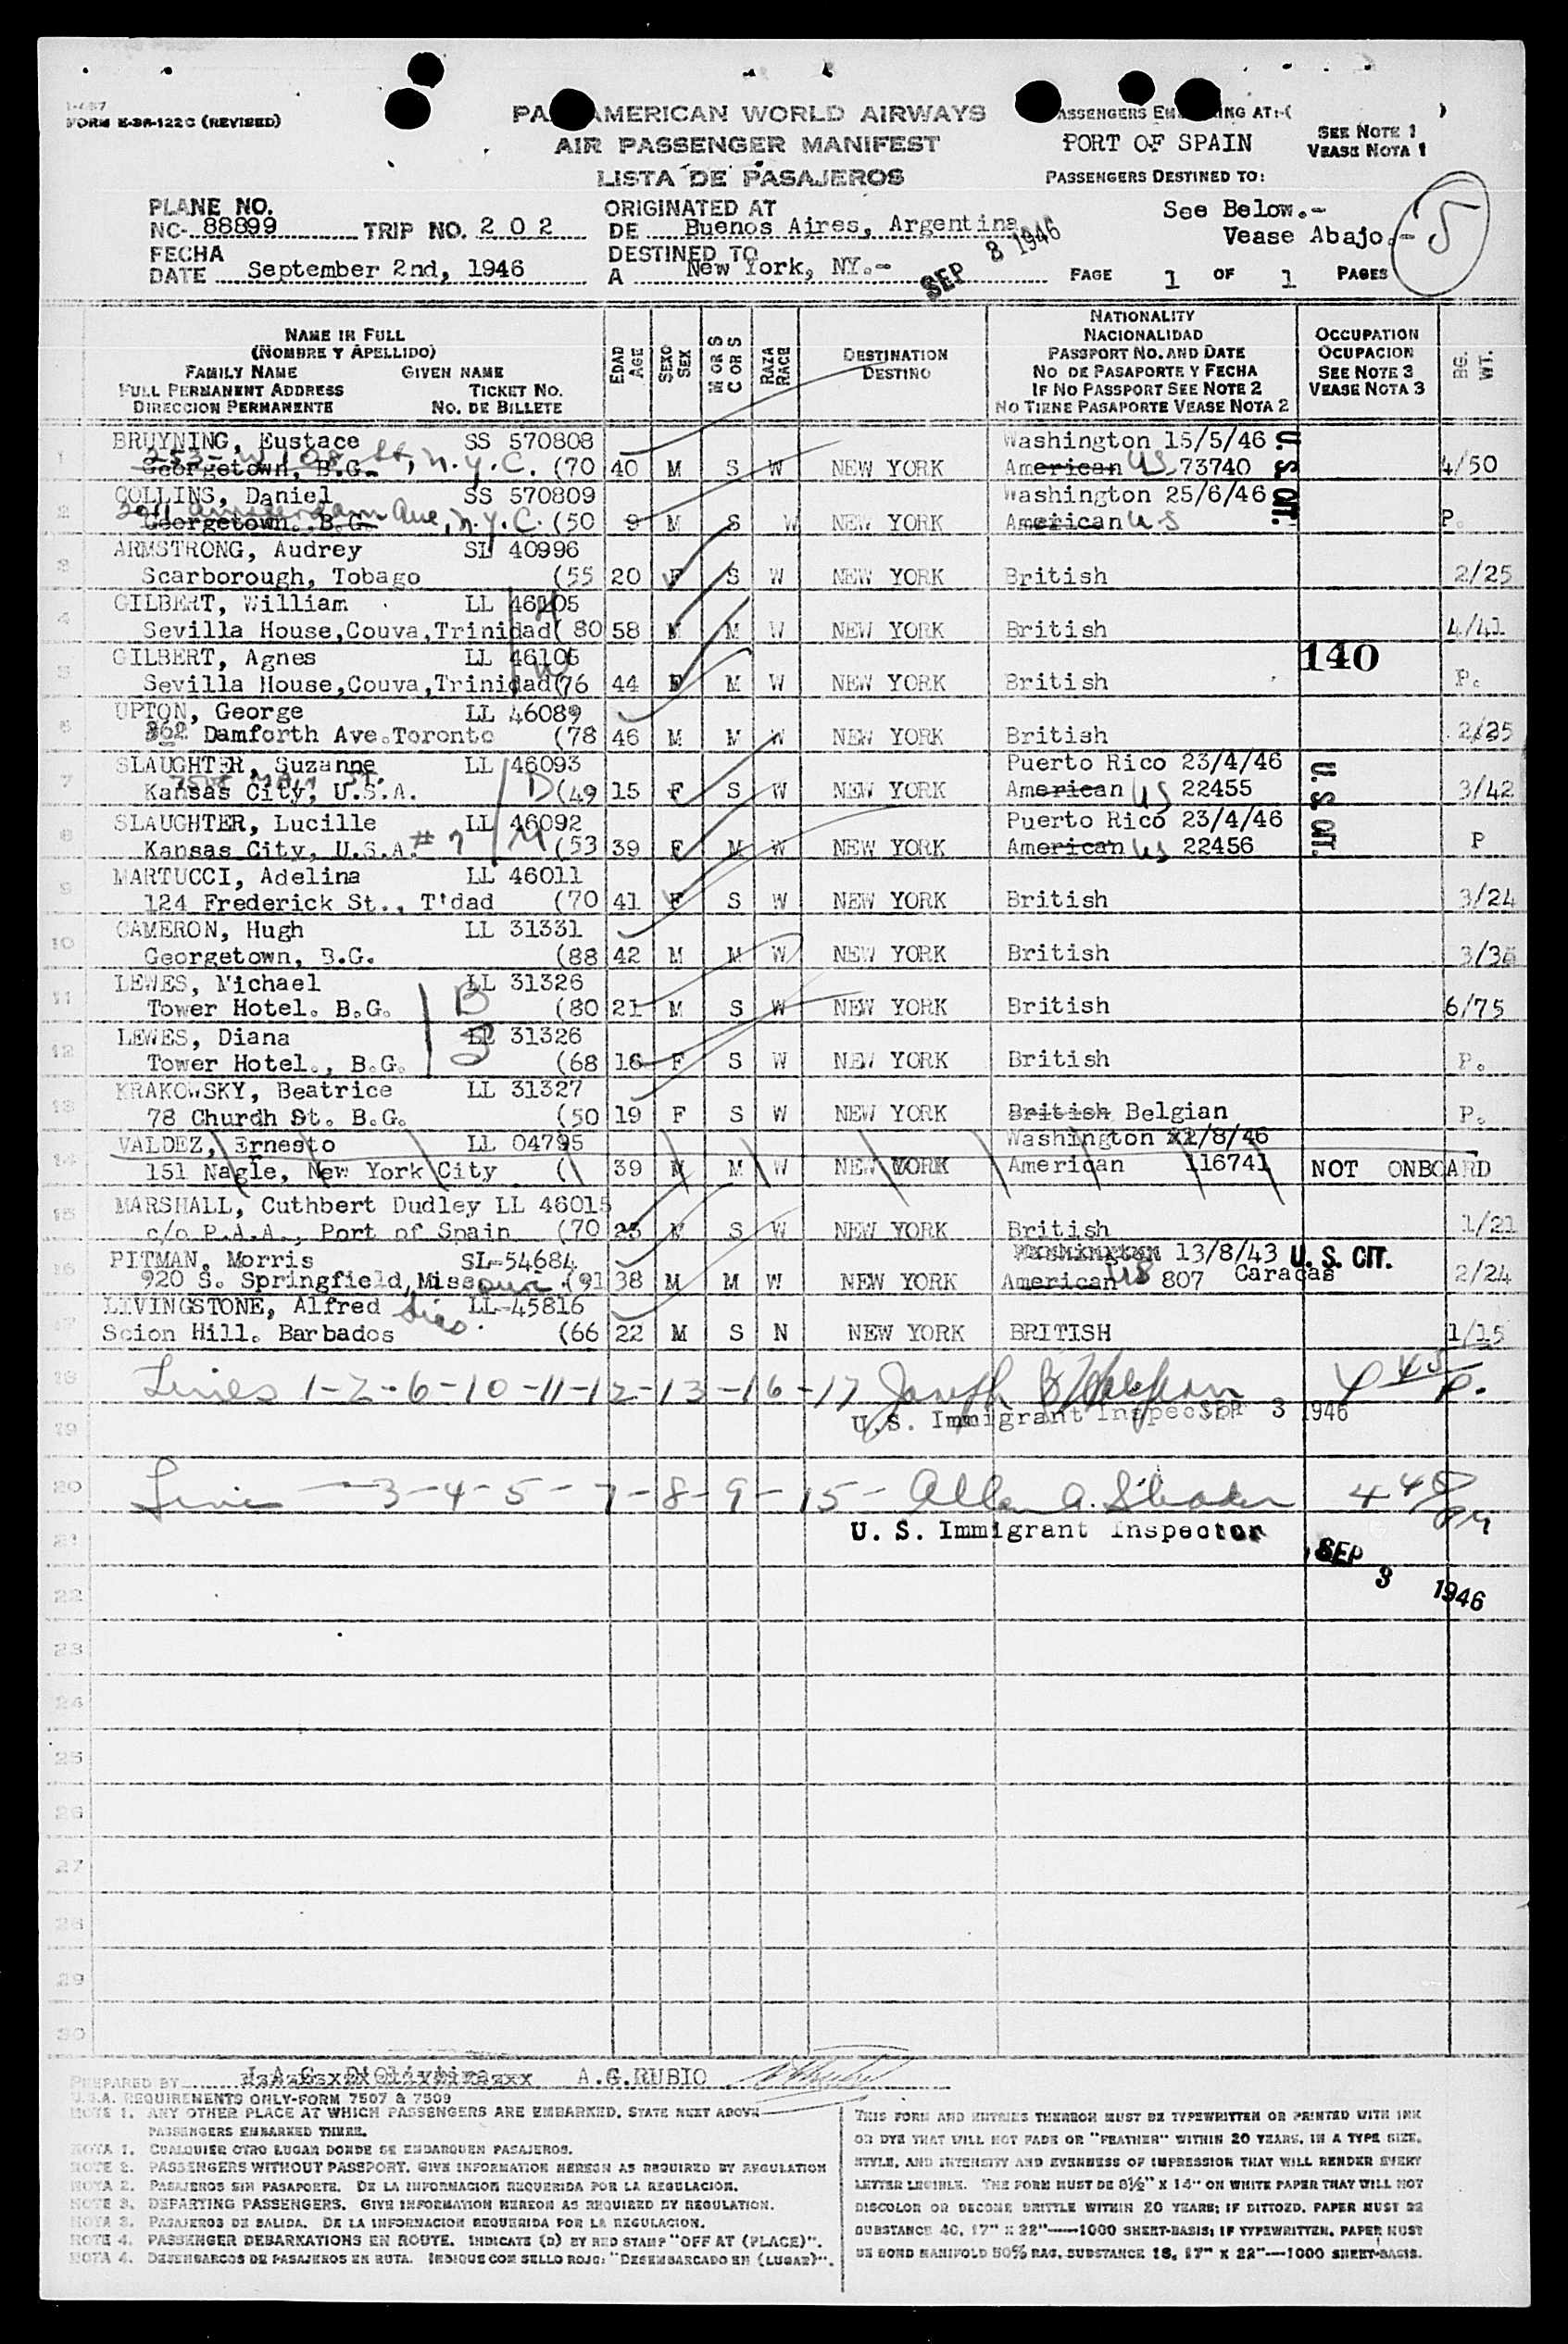 FORM E-3R-122C (REVISED)
PAN AMERICAN WORLD AIRWAYS
AIR PASSENGER MANIFEST
LISTA DE PASAJEROS
PORT OF SPAIN
PASSENGERS DESTINED TO:
SEE NOTE 1
VEASE NOTA 1
See Below.-
Vease Abajo.-
5
PLANE NO.
NC- 88899 TRIP NO. 2 0 2
FECHA
DATE September 2nd, 1946
ORIGINATED AT
DE Buenos Aires, Argentina
DESTINED TO
A New York, NY.-
SEP 8 1946
PAGE 1 OF 1 PAGES
NAME IN FULL
(NOMBRE Y APELLIDO)
FAMILY NAME GIVEN NAME
FULL PERMANENT ADDRESS TICKET NO.
DIRECCION PERMANENTE NO. DE BILLETE
EDAD AGE
SEXO SEX
M OR S C OR S
RAZA RACE
DESTINATION
DESTINO
NATIONALITY
NACIONALIDAD
PASSPORT NO. AND DATE
NO DE PASAPORTE Y FECHA
IF NO PASSPORT SEE NOTE 2
NO TIENE PASAPORTE VEASE NOTA 2
OCCUPATION
OCUPACION
SEE NOTE 3
VEASE NOTA 3
BG. WT.
1 BRUYNING, Eustace SS 570808 Washington 15/5/46 U. S. CIT.
253- W 108 St, N.Y.C.
Georgetown, B.G. (70 40 M S W NEW YORK American US 73740 4/50
2 COLLINS, Daniel SS 570809 Washington 25/6/46
Amsterdam Ave, N.Y.C.
Georgetown. B.G. (50 9 M S W NEW YORK American US P.
3 ARMSTRONG, Audrey SL 40996
Scarborough, Tobago (55 20 F S W NEW YORK British 2/25
4 GILBERT, William LL 46105 H
Sevilla House,Couva,Trinidad( 80 58 M M W NEW YORK British 4/41
140
5 GILBERT, Agnes LL 46106 W
Sevilla House,Couva,Trinidad(76 44 F M W NEW YORK British P.
6 UPTON, George LL 46089
362 Damforth Ave.Toronto (78 46 M M W NEW YORK British 2/25
7 SLAUGHTER, Suzanne LL 46093 Puerto Rico 23/4/46 U. S. CIT.
Main St.
Kansas City, U.S.A. D (49 15 F S W NEW YORK American US 22455 3/42
8 SLAUGHTER, Lucille LL 46092 Puerto Rico 23/4/46
Kansas City, U.S.A. # 7 M (53 39 F M W NEW YORK American US 22456 P
9 MARTUCCI, Adelina LL 46011
124 Frederick St., T'dad (70 41 F S W NEW YORK British 3/24
10 CAMERON, Hugh LL 31331
Georgetown, B.G. (88 42 M M W NEW YORK British
11 LEWES, Michael LL 31326
Tower Hotel. B.G. B (80 21 M S W NEW YORK British 6/75
12 LEWES, Diana LL 31326
Tower Hotel., B.G. S (68 16 F S W NEW YORK British P.
13 KRAKOWSKY, Beatrice LL 31327
78 Church St. B.G. (50 19 F S W NEW YORK British Belgian P.
14 VALDEZ, Ernesto LL 04795 Washington /8/46
151 Nagle, New York City ( 39 M M W NEW YORK American 116741 NOT ONBOARD
15 MARSHALL, Cuthbert Dudley LL 46015
c/o P.A.A., Port of Spain (70 23 M S W NEW YORK British 1/21
16 PITMAN, Morris SL-54684 Washington 13/8/43 U. S. CIT.
920 S. Springfield,Missouri (91 38 M M W NEW YORK American US 807 Caracas 2/24
17 LIVINGSTONE, Alfred LL-45816
Scion Hill. Barbados (66 22 M S N NEW YORK BRITISH 1/15
18 Lines 1-2-6-10-11-12-13-16-17 Joseph
19 U.S. Immigrant Inspector SEP 3 1946
20 Line 3-4-5-7-8-9-15- Allen A.
21 U. S. Immigrant Inspector
SEP 3 1946
22
23
24
25
26
27
28
29
30
PREPARED BY A.G.RUBIO
U.S.A. REQUIREMENTS ONLY-FORM 7507 & 7509
NOTE 1. ANY OTHER PLACE AT WHICH PASSENGERS ARE EMBARKED. STATE NEXT ABOVE
PASSENGERS EMBARKED THERE.
NOTA 1. CUALQUIER OTRO LUGAR DONDE SE EMBARQUEN PASAJEROS.
NOTE 2. PASSENGERS WITHOUT PASSPORT. GIVE INFORMATION HEREON AS REQUIRED BY REGULATION
NOTA 2. PASAJEROS SIN PASAPORTE. DE LA INFORMACION REQUERIDA POR LA REGULACION.
NOTE 3. DEPARTING PASSENGERS. GIVE INFORMATION HEREON AS REQUIRED BY REGULATION.
NOTA 3. PASAJEROS DE SALIDA. DE LA INFORMACION REQUERIDA POR LA REGULACION.
NOTE 4. PASSENGER DEBARKATIONS EN ROUTE. INDICATE (D) BY RED STAMP "OFF AT (PLACE)".
NOTA 4. DESEMBARCOS DE PASAJEROS EN RUTA. INDIQUE CON SELLO ROJO: "DESEMBARCADO EN (LUGAR)".
THIS FORM AND ENTRIES THEREON MUST BE TYPEWRITTEN OR PRINTED WITH INK
OR DYE THAT WILL NOT FADE OR "FEATHER" WITHIN 20 YEARS, IN A TYPE SIZE,
STYLE, AND INTENSITY AND EVENNESS OF IMPRESSION THAT WILL RENDER EVERY
LETTER LEGIBLE. THE FORM MUST BE 8½" X 14" ON WHITE PAPER THAT WILL NOT
DISCOLOR OR BECOME BRITTLE WITHIN 20 YEARS; IF DITTOED, PAPER MUST BE
SUBSTANCE 40, 17" X 22"-----1000 SHEET-BASIS; IF TYPEWRITTEN, PAPER MUST
BE BOND MANIFOLD 50% RAG, SUBSTANCE 16, 17" X 22"---1000 SHEET-BASIS.